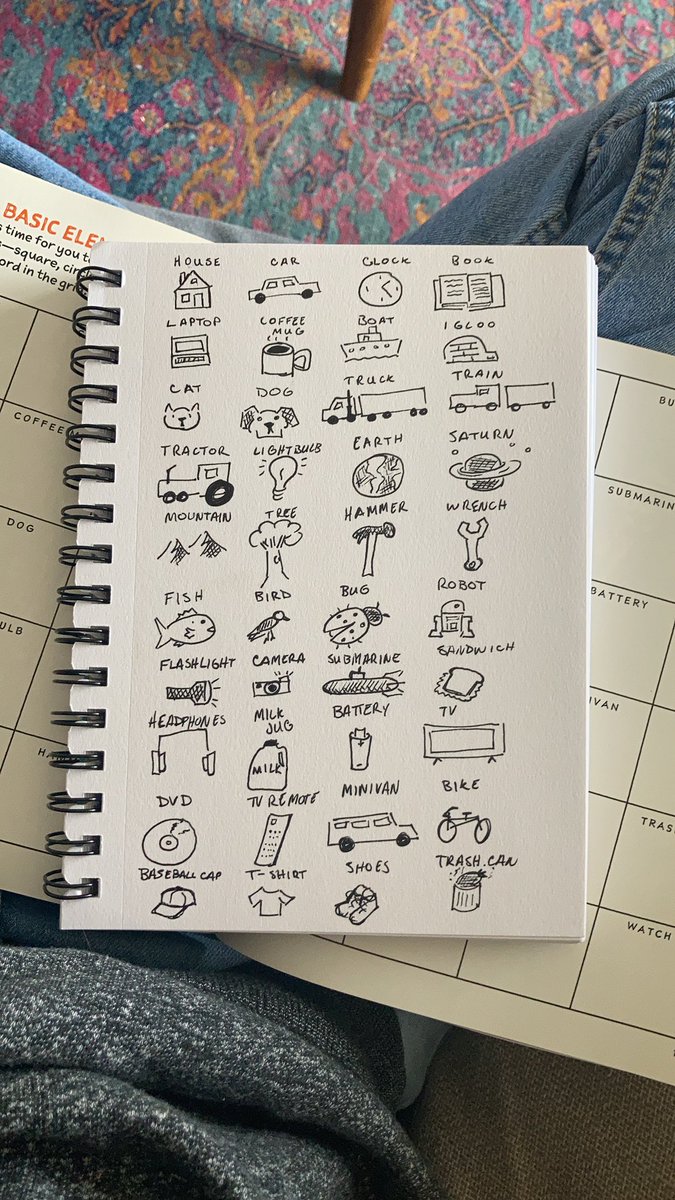 BASIC ELE
s time for you t
s—square, cir
ord in the gri
HOUSE CAR CLOCK BOOK
LAPTOP COFFEE MUG BOAT IGLOO
CAT DOG TRUCK TRAIN
TRACTOR LIGHTBULB EARTH SATURN
MOUNTAIN TREE HAMMER WRENCH
FISH BIRD BUG ROBOT
FLASHLIGHT CAMERA SUBMARINE SANDWICH
HEADPHONES MILK JUG BATTERY TV
MILK
DVD TV REMOTE MINIVAN BIKE
BASEBALL CAP T-SHIRT SHOES TRASH CAN
COFFEE
DOG
ULB
HA
BU
SUBMARIN
BATTERY
IVAN
TRAS
WATCH